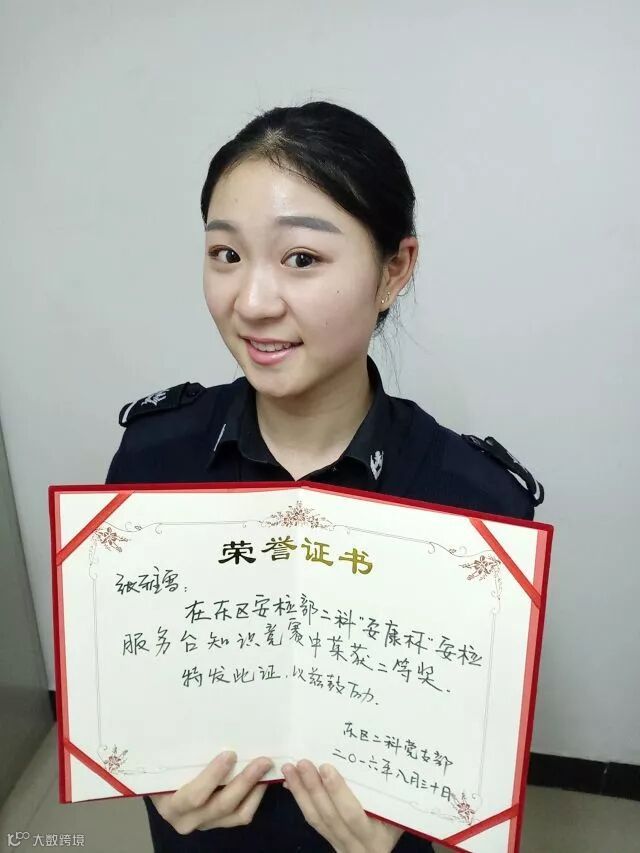 荣誉证书
张雅雪：
在东区安检部二科"安康杯"安检
服务台知识竞赛中荣获二等奖.
特发此证,以兹鼓励.
东区二科党支部
二〇一六年八月三十日
大数跨境